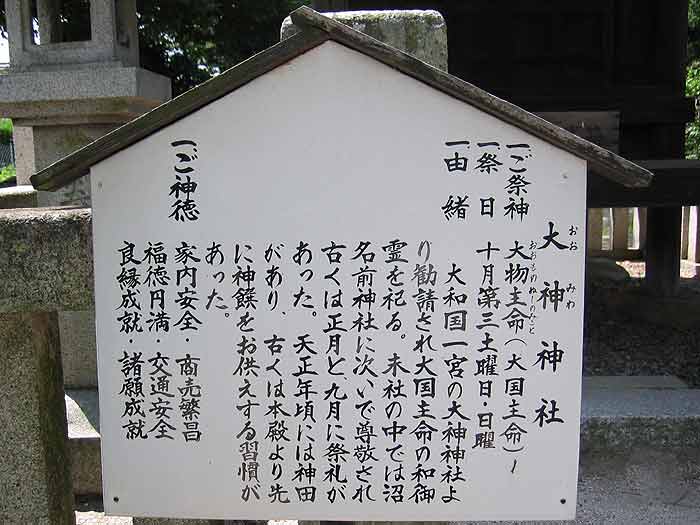 大神神社
おお みわ
一ご祭神 大物主命(大国主命)
おおものぬしのみこと
一祭日 十月第三土曜日・日曜
一由緒
大和国一宮の大神神社よ
り勧請され大国主命の和御
霊を祀る。末社の中では沼
名前神社に次いで尊敬され
古くは正月と、九月に祭礼が
あった。天正年頃には神田
があり、古くは本殿より先
に神饌をお供えする習慣が
あった。
一ご神徳
家内安全・商売繁昌
福徳円満・交通安全
良縁成就・諸願成就